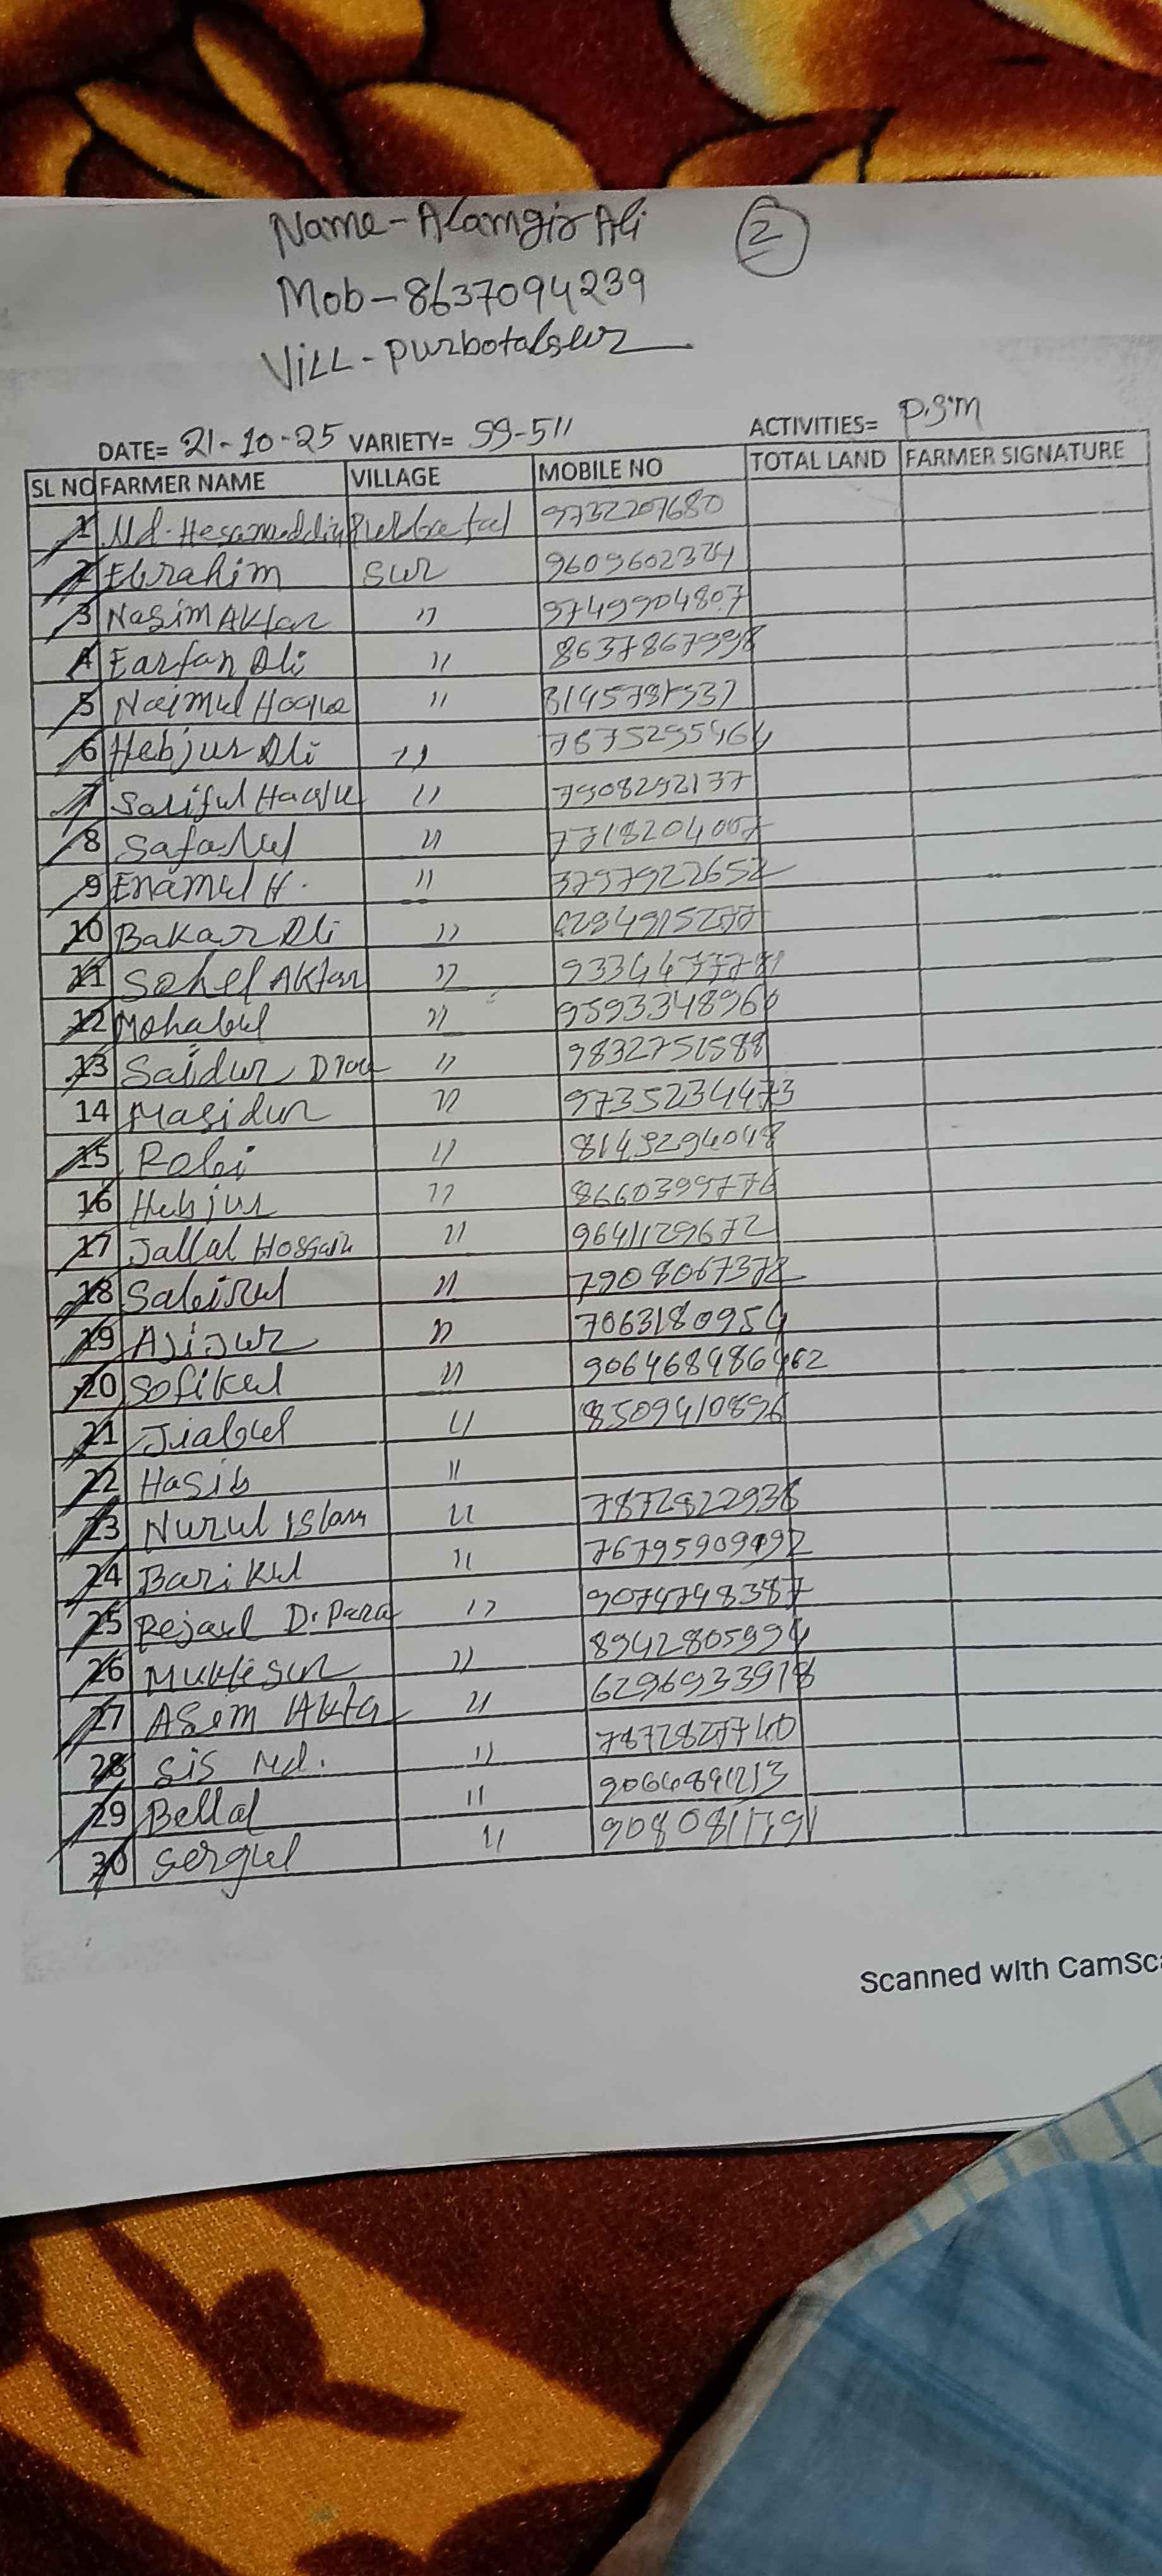 Name - Alamgir Ali
2
Mob - 8637094239
Vill - purbotalsur
DATE= 21-10-25 VARIETY= SS-511 ACTIVITIES= P.S.M
SL NO FARMER NAME VILLAGE MOBILE NO TOTAL LAND FARMER SIGNATURE
1 Md. Hesamuddin Purbatal 9732207680
2 Ebrahim sur 9609602324
3 Nasim Aktar " 9749904807
4 Earfan Ali " 8637867998
5 Naimul Hoque "
6 Hebjur Ali "
7 Sariful Haque " 7908292137
8 "
9 Enamul H. "
10 Bakar Ali "
11 Sohel Aktar "
12 Mohabul " 9593348960
13 Saidur " 9832751588
14 Masidur " 9735234473
15 Robi " 8145294048
16 Hebjur " 8660399776
17 Jallal Hossain " 9641129672
18 Sabirul " 7908067372
19 Ajijur " 7063180954
20 Sofikul "
21 Jiabul " 8509410896
22 Hasib "
23 Nurul Islam " 7872822936
24 Barikul "
25 Rejaul D. Para " 9074748387
26 " 8942805994
27 Asim Akta " 6296933918
28 Sis Md. " 7872827740
29 Bellal "
30 "
Scanned with CamSca